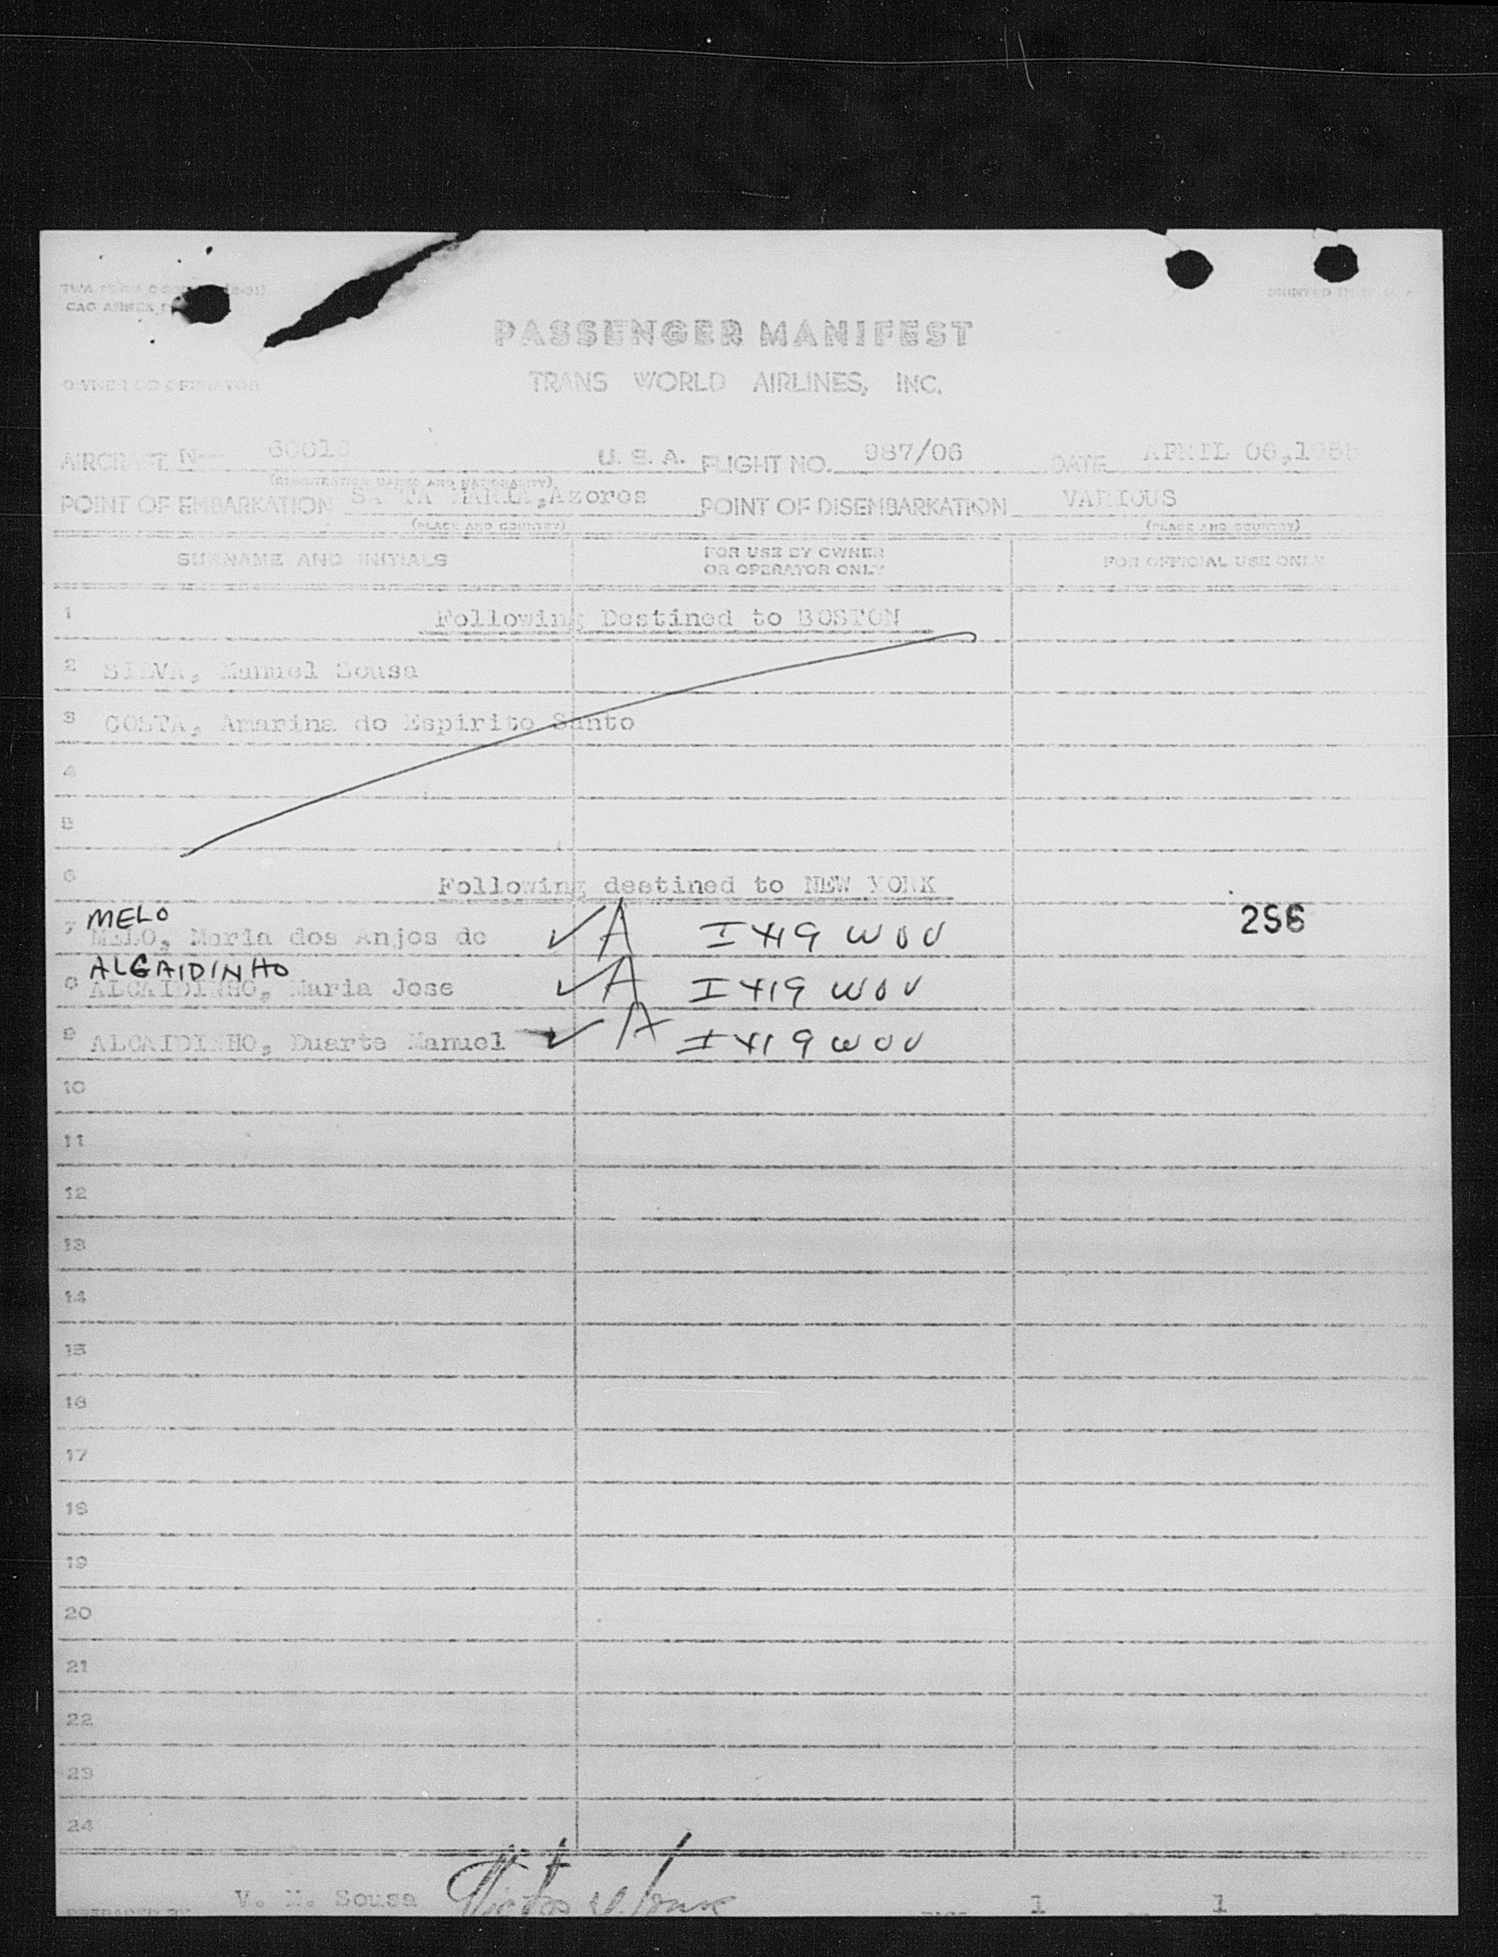 PRINTED IN
PASSENGER MANIFEST
OWNER OR OPERATOR TRANS WORLD AIRLINES, INC.
AIRCRAFT N- U. S. A. FLIGHT NO. 987/06 DATE APRIL 06,
(REGISTRATION MARKS AND NATIONALITY)
POINT OF EMBARKATION SANTA MARIA,Azores POINT OF DISEMBARKATION VARIOUS
(PLACE AND COUNTRY) (PLACE AND COUNTRY)
SURNAME AND INITIALS FOR USE BY OWNER OR OPERATOR ONLY FOR OFFICIAL USE ONLY
1 Following Destined to BOSTON
2 SILVA, Manuel Sousa
3 COSTA, Amarina do Espirito Santo
4
5
6 Following destined to NEW YORK
MELO
7 MELO, Maria dos Anjos de ✓ A I 419 WOV 256
ALGAIDINHO
8 ALCAIDINHO, Maria Jose ✓ A I 419 WOV
9 ALCAIDINHO, Duarte Manuel ✓ A I 419 WOV
10
11
12
13
14
15
16
17
18
19
20
21
22
23
24
PREPARED BY V. M. Sousa PAGE 1 OF 1